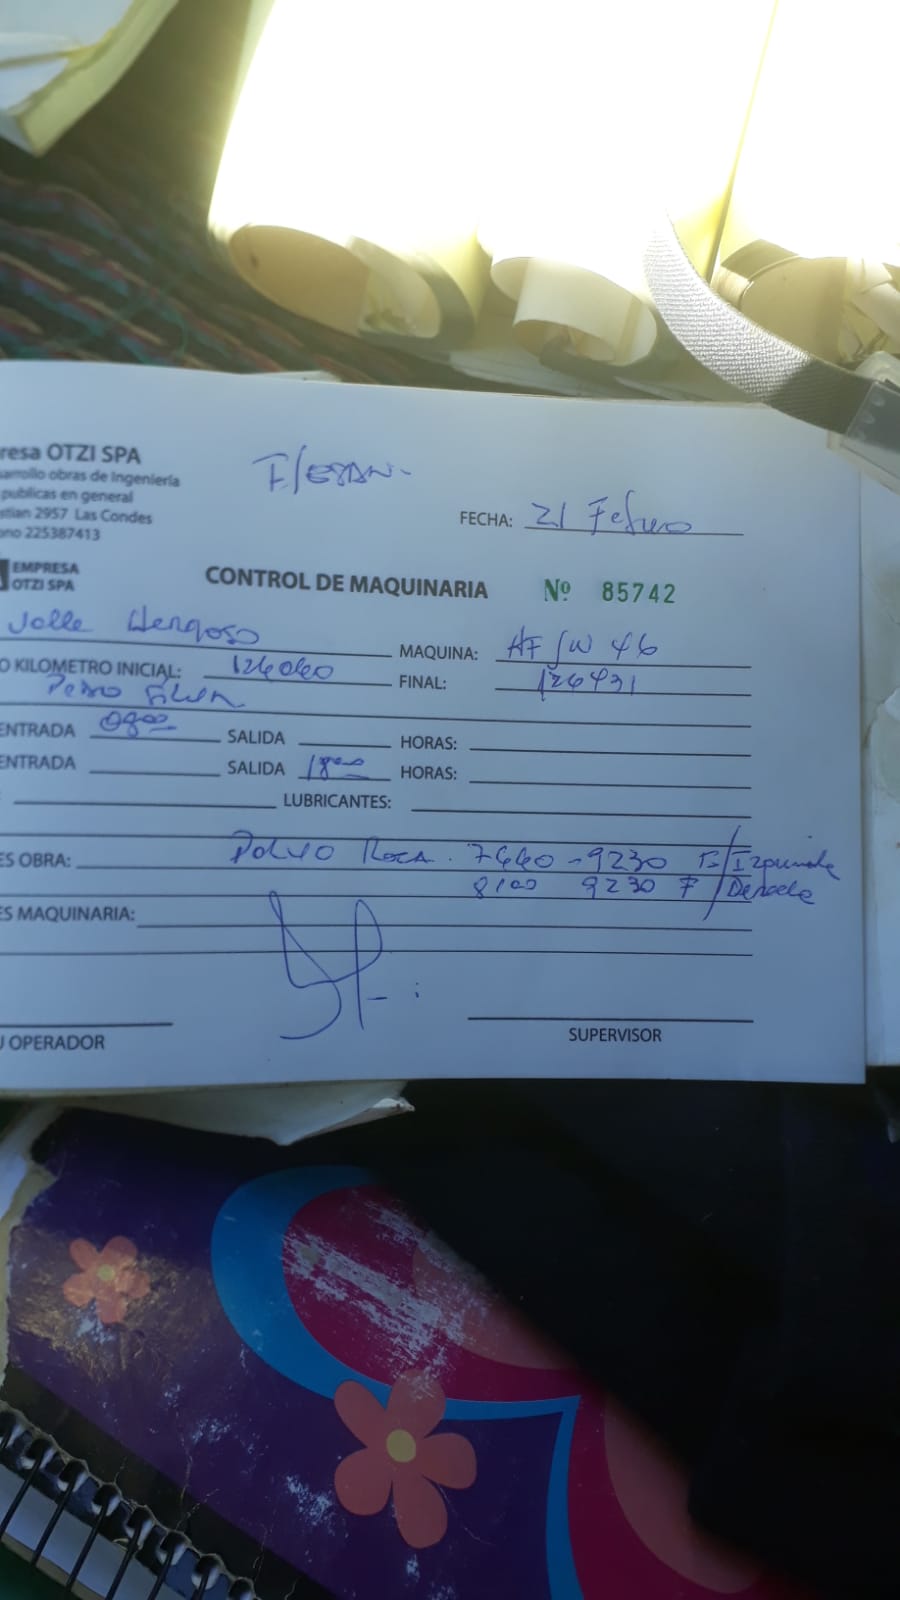 resa OTZI SPA
arrollo obras de Ingeniería
publicas en general
stian 2957 Las Condes
ono 225387413
FECHA: 21 Febrero
EMPRESA
OTZI SPA
CONTROL DE MAQUINARIA Nº 85742
Valle Hermoso
MAQUINA:
O KILOMETRO INICIAL: FINAL: 126431
Pedro Silva
ENTRADA 0800 SALIDA HORAS:
ENTRADA SALIDA 1800 HORAS:
: LUBRICANTES:
ES OBRA: Polvo Roca. 7440 - 9230 F/Izquierda
8100 9230 F/Derecha
ES MAQUINARIA:
OPERADOR
SUPERVISOR